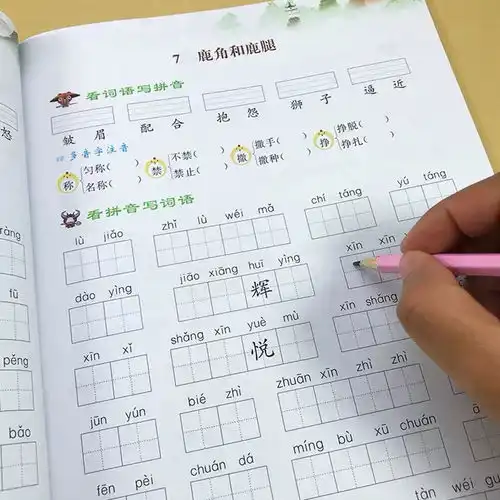 7 鹿角和鹿腿
看词语写拼音
皱眉 配合 抱怨 狮子 逼近
多音字注音
称 匀称( ) 名称( ) 禁 不禁( ) 禁止( ) 撒 撒手( ) 撒种( ) 挣 挣脱( ) 挣扎( )
看拼音写词语
lù jiǎo zhǐ lù wéi mǎ chí táng yú táng
dào yìng jiāo xiāng huī yìng xīn xīn
辉
xīn xǐ shǎng xīn yuè mù xīn shǎng
悦
jūn yún bié zhì zhuān xīn zhì zhì
fēn pèi chuán dá míng bù xū chuán
怨
ràng
fū
pěng
bǎo